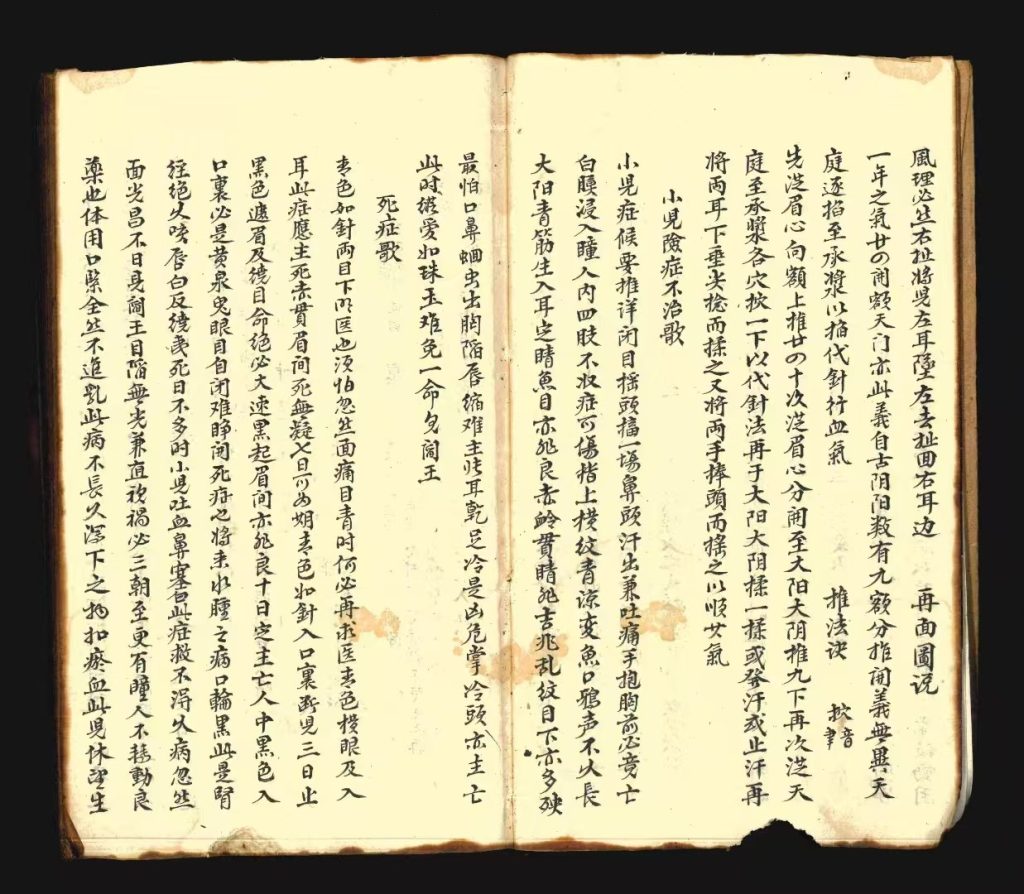 風理必些右扯將児左耳墜左去扯回右耳边 再面圖说
一年之氣廿四開額天门亦此義自古阴阳数有九額分推開義無異天
庭逐掐至承漿以掐代針行血氣 推法诀
先從眉心向額上推廿四十次從眉心分開至大阳大阴推九下再次從天
庭至承漿各穴按一下以代針法再于大阳大阴揉一揉或發汗或止汗再
將两耳下垂尖捻而揉之又將两手捧頭而摇之以順其氣
小児險症不治歌
小児症候要推详闭目摇頭搐一場鼻頭汗出兼吐痛手抱胸前必竟亡
白膜浸入瞳人内四肢不收症可傷指上横纹青谅变魚口鸦声不久長
大阳青筋生入耳定睛魚目亦非良赤脉貫睛非吉兆乱纹目下亦多殃
最怕口鼻蛔虫出胸陷唇缩难主张耳乾足冷是凶危掌冷頭亦主亡
此时縱爱如珠玉难免一命見阎王
死症歌
青色如針两目下明医也须怕忽然面痛目青时何必再求医青色横眼及入
耳此症應主死赤貫眉间死無疑七日可為期青色如針入口裏断児三日止
黑色遮眉及绕目命绝必大速黑起眉间亦非良十日定主亡人中黑色入
口裏必是黄泉鬼眼目自闭难睁開死症之将来水腫之病口輪黑此是腎
经绝久咳唇白反绕感死日不多时小児吐血鼻塞此症救不得久病忽然
面光昌不日見阎王目陷無光兼直视祸必三朝至更有瞳人不移動良
藥也体用口緊全然不進乳此病不長久泻下之物如瘀血此児休望生